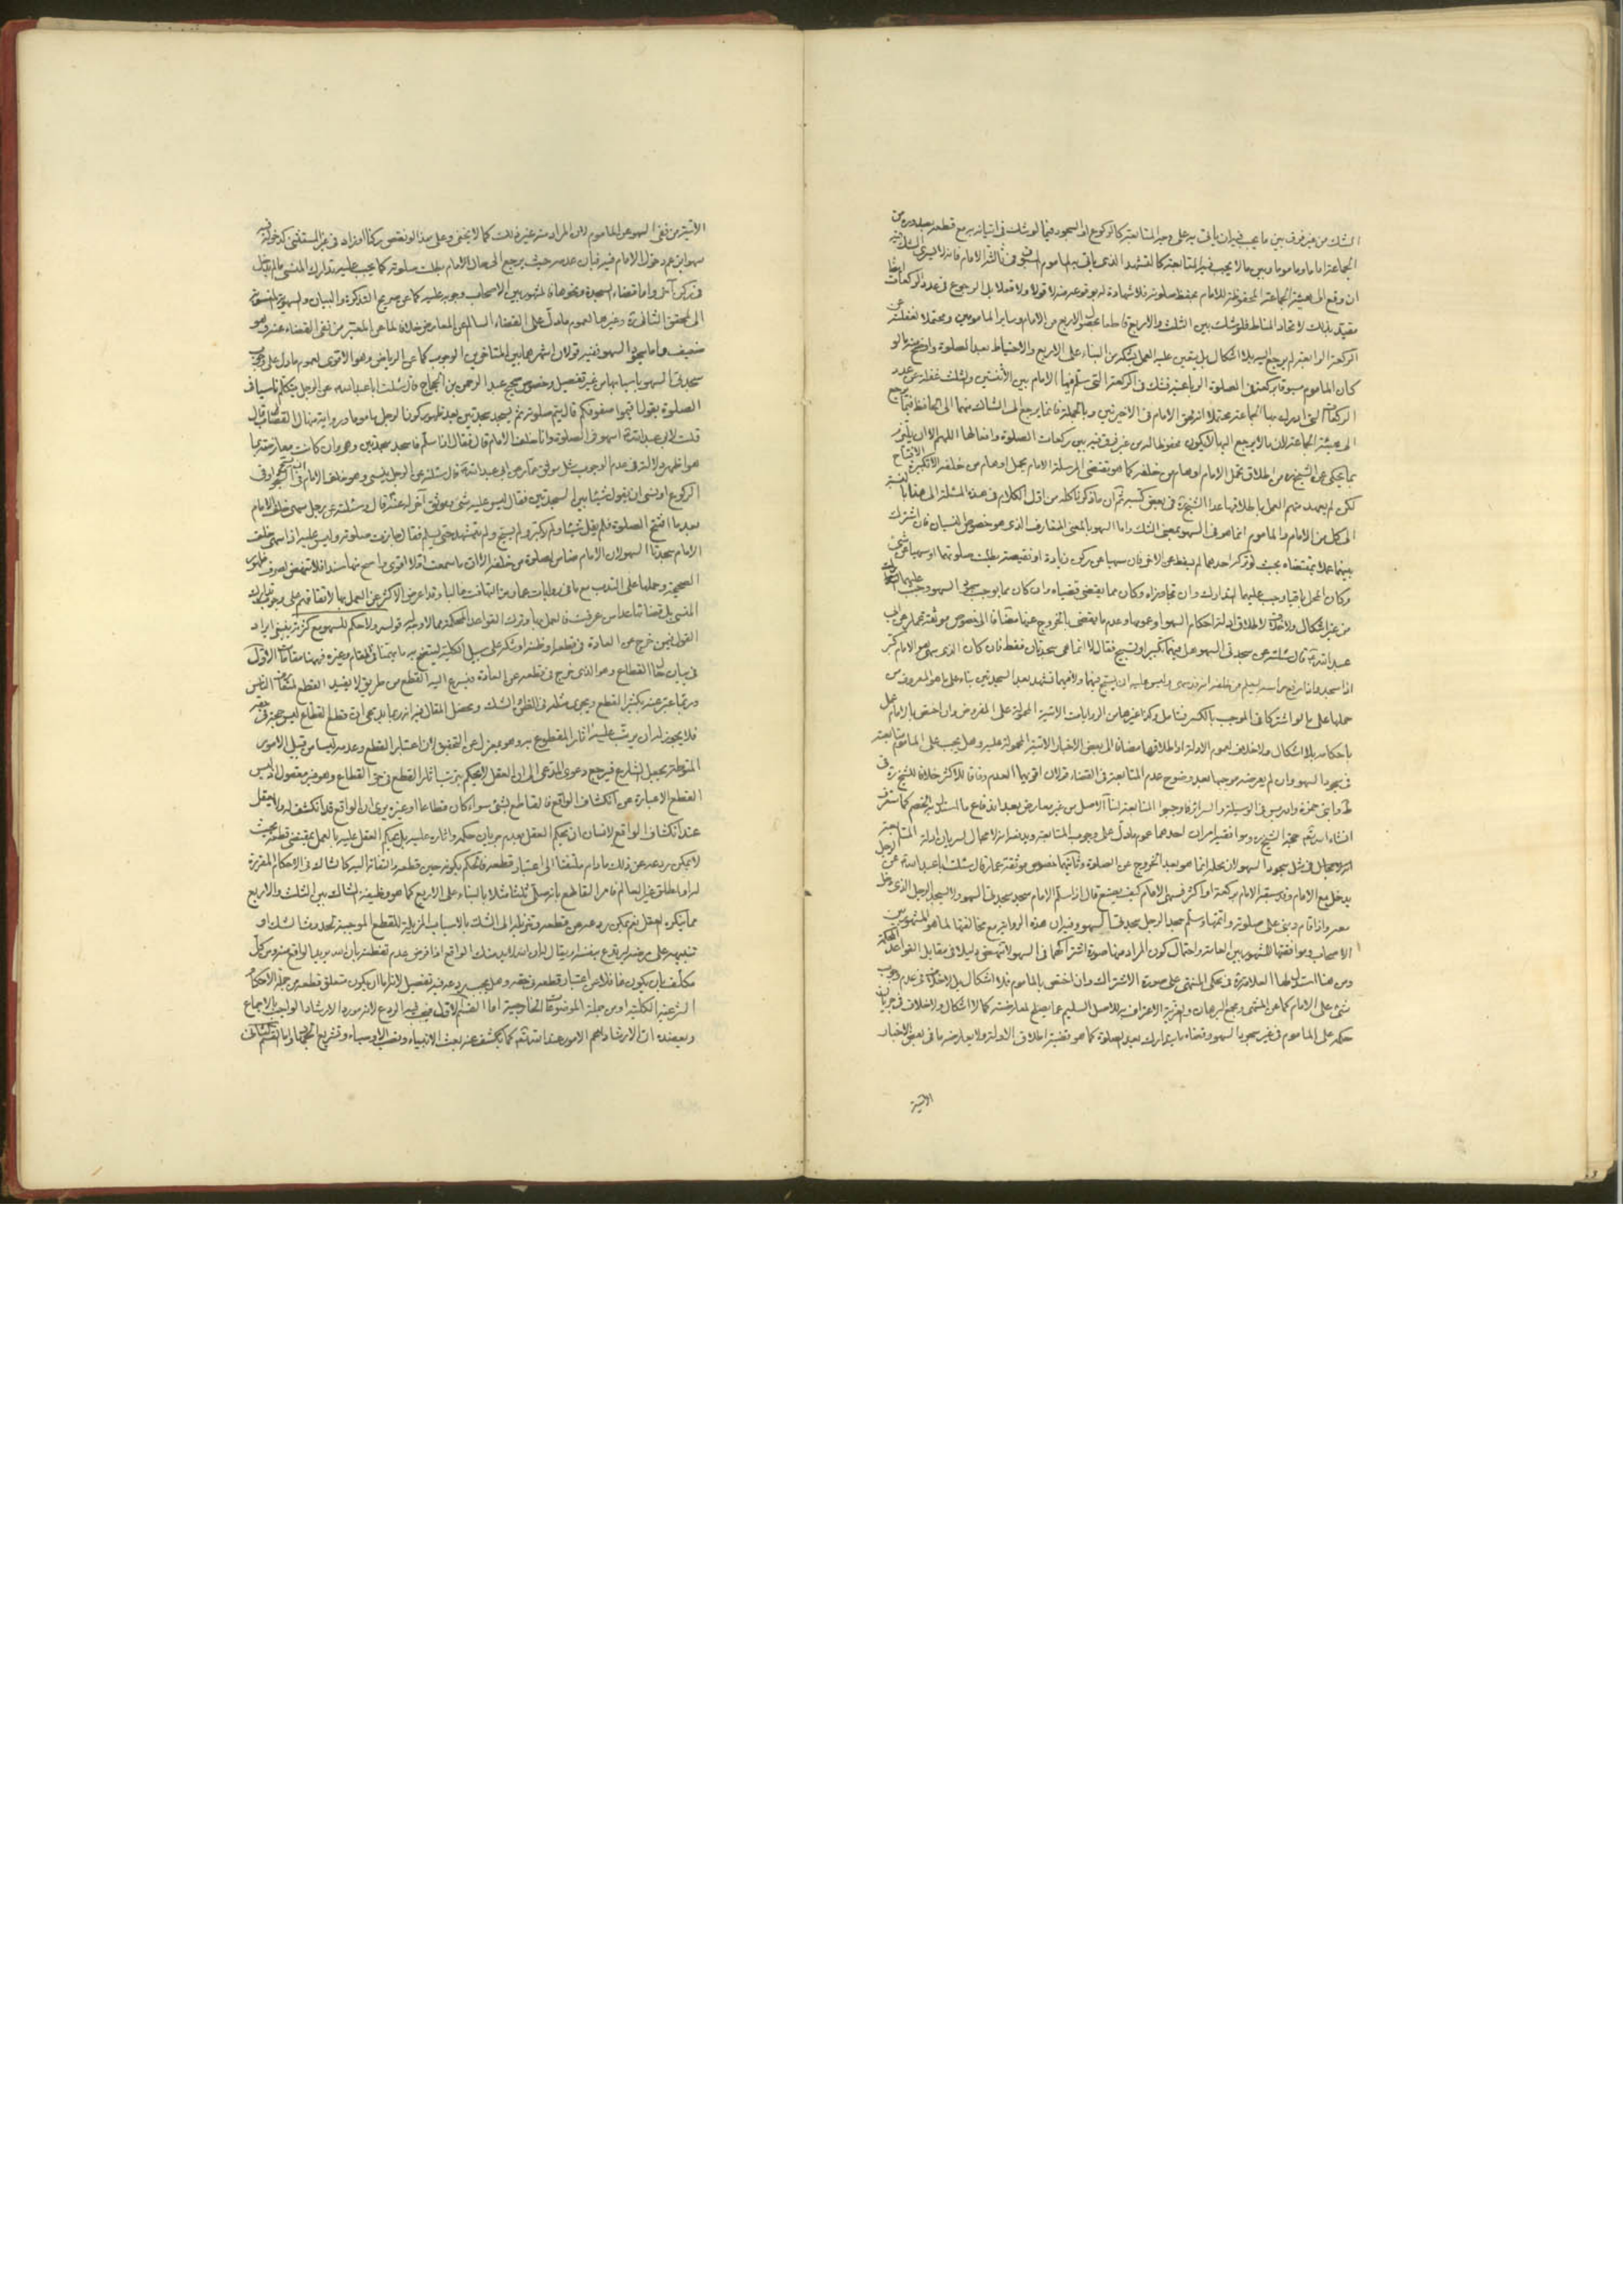 الشك من غير فرق بين ما يجب فيه ان يأتى به على وجه المتابعة كالركوع او السجود فيما لو شك فى اتيانه به مع قطعه بعد وره من
الجماعة اماما وماموما وبين ما لا يجب فيه المتابعة كالتشهد الذى يأتى به الماموم فى ثالثة الامام فانه لا
ان وقع الى هيئة الجماعة المحفوظة للامام بحفظ صلوته فلا شهادة له بوقوعه منه لا قولا ولا فعلا بل الرجوع فى عدد الركعات ايضا
مقيد بذلك لاتحاد المناط فلو شك بين الثلث والاربع قاطعا الاربع من الامام وساير المامومين ومحتملا لغفلته عن
الركعة الرابعة لم يرجع اليه بلا اشكال بل يتعين عليه العمل بشكه من البناء على الاربع والاحتياط بعد الصلوة
كان الماموم مسبوقا بركعة فى الصلوة الرباعية فشك فى الركعة التى سلم فيها الامام بين الاثنتين والثلث غفلة عن عدد
الركعات التى ادرك بها الجماعة محتملا الامام فى الاخيرتين وبالجملة فانما يرجع الى الشاك منهما الى الحافظ فيما يرجع
الى هيئة الجماعة لان ما لا يرجع اليها لا يكون محفوظا له من غير فرق فيه بين ركعات الصلوة وافعالها اللهم الا ان
بما يحكى عن الشيخ ره من اطلاق تحمل الامام اوهام من خلفه كما هو مقتضى المرسلة الامام يحمل اوهام من خلفه الا تكبيرة الافتتاح
لكن لم يعهد منهم العمل باطلاقها عدا الشيخ ره فى بعض كتبه ثم ان ما ذكرنا كله من اول الكلام فى هذه المسئلة الى هنا بالنسبة
الى كل من الامام والماموم انما هو فى السهو بمعنى الشك واما السهو بالمعنى المتعارف الذى هو خصوص النسيان فان اشترك
بينهما عملا بمقتضاه بحيث لو ذكر احدهما لم يحفظ على الاخر فان سهيا عن ركن زيادة او نقيصة بطلت صلوتهما او سهيا عن شئ
وكان المحل باقيا وجب عليهما التدارك وان تجاوزاه وكان مما يقتضى قضياه وان كان مما يوجب سجدتى السهو وجب عليهما
من غير اشكال ولا خلاف لاطلاق ادلة احكام السهو او عمومها وعدم ما يقتضى بالخروج عنها مضافا الى خصوص موثقة عمار عن ابى
عبد الله ع قال سئلته عن سجدتى السهو هل فيهما تكبير او تسبيح فقال لا انما هى سجدتان فقط فان كان الذى سهى هو الامام كبر
اذا سجد واذا رفع رأسه ليعلم من خلفه انه قد سهى وليس عليه ان يسبح فيهما ولا فيهما تشهد بعد السجدتين بناء على ما هو المعروف من
حملها على ما لو اشتركا فى الموجب بالكسر فتامل وكذا غيرها من الروايات الاتية المحمولة على المفروض وان اختص بالامام عمل
باحكامه بلا اشكال ولا خلاف لعموم الادلة او اطلاقها مضافا الى بعض الاخبار الاتية المحمولة عليه وهل يجب على الماموم متابعته
فى سجود السهو وان لم يعرضه موجبها بعد وضوح عدم المتابعة فى القضاء قولان اقويهما العدم وفاقا للاكثر خلافا للشيخ ره فى
ط وابنى حمزة وادريس فى الوسيلة والسرائر فاوجبوا المتابعة لنا الاصل من غير معارض بعد اندفاع ما استدل به الخصم كما ستعرف
انشاء الله ثم حجة الشيخ ره وموافقيه امران احدهما عموم ما دل على وجوب المتابعة ويدفعه انه لا مجال لسريان ادلة المتابعة
لمثل سجود السهو لان محله انما هو بعد الخروج عن الصلوة وثانيهما خصوص موثقة عمار قال سئلت ابا عبد الله ع عن الرجل
يدخل مع الامام وقد سبقه الامام بركعة او اكثر فسهى الامام كيف يصنع قال اذا سلم الامام سجد سجدتى السهو ولا يسجد الرجل الذى دخل
معه واذا قام وبنى على صلوته واتمها وسلم سجد الرجل سجدتى السهو وفيه ان هذه الرواية مع مخالفتها لما هو المشهور بين
الاصحاب وموافقتها للمشهور بين العامة واحتمال كون المراد منها صورة اشتراكهما فى السهو لا تنهض دليلا فى مقابل القواعد المحكمة
ومن هنا استدل لها العلامة ره فى محكى المنتهى على صورة الاشتراك وان اختص بالماموم فلا اشكال بل لا خلاف فى عدم وجوب
شئ على الامام كما عن المنتهى ومجمع البرهان والغرية الاعتراف به للاصل السليم عما يصلح لمعارضته كما لا اشكال ولا خلاف فى جريان
حكمه على الماموم فى غير سجود السهو وقضاء ما يتدارك بعد الصلوة كما هو قضية اطلاق الادلة ولا يعارضه ما فى بعض الاخبار
الاتية
الاتية من نفى السهو عن الماموم لان المراد منه غير ذلك كما لا يخفى وعلى هذا لو نقص ركنا او زاد فى غير المستثنى كدخوله فيه
سهوا من عدم دخول الامام فيه فبان عدمه حيث يرجع الى حال الامام بطلت صلوته كما يجب عليه تدارك المنسى ما لم يدخل
فى ركن آخر واما قضاء السجدة ونحوها فالمشهور بين الاصحاب وجوبه عليه كما عن صريح التذكرة والبيان
الى المحقق الثانى ره وغيرها لعموم ما دل على القضاء السالم عن المعارض خلافا لما عن المعتبر من نفى القضاء عنه وهو
ضعيف واما سجود السهو ففيه قولان اشهرهما بين المتاخرين الوجوب كما عن الرياض وهو الاقوى لعموم ما دل على وجوب
سجدتى السهو باسبابها من غير تفصيل وخصوص صحيح عبد الرحمن بن الحجاج قال سئلت ابا عبد الله ع عن الرجل يتكلم ناسيا فى
الصلوة يقول اقيموا صفوفكم قال يتم صلوته ثم يسجد سجدتين بعد ظهور كون الرجل ماموما ورواية منهال القصاب قال
قلت لابى عبد الله ع اسهو فى الصلوة وانا خلف الامام قال فقال اذا سلم فاسجد سجدتين وهو وان كانت معارضة بما
هو اظهر دلالة فى عدم الوجوب مثل موثق عمار عن ابى عبد الله ع قال سئلته عن الرجل ينسى وهو خلف الامام ان يسبح فى السجود او فى
الركوع او نسى ان يقول شيئا بين السجدتين فقال ليس عليه شئ وموثق آخر له عنه ع قال وسئلته عن رجل سهى خلف الامام
بعد ما افتتح الصلوة فلم يقل شيئا ولم يكبر ولم يسبح ولم يتشهد حتى يسلم فقال جازت صلوته وليس عليه اذا سهى خلف
الامام سجدتا السهو لان الامام ضامن لصلوة من خلفه الا ان ما سمعت اولا اقوى واصح منها سندا فلا تنهض لصرف ظهور
الصحيحة وحملها على الندب مع ما فى روايات عمار من التهافت غالبا وقد اعرض الاكثر عن العمل بها لاتفاقهم على وجوب تدارك
المنسى بل قضائه على ما عرفت فالعمل بها وترك القواعد المحكمة مما لا وجه له قوله ولا حكم للسهو مع كثرته ينبغى ايراد
القول فيمن خرج عن العادة فى قطعه او ظنه او شكه على سبيل الكلية ليتضح به ما يهمنا فى المقام وغيره فهيهنا مقامات الاول
فى بيان حال القطاع وهو الذى خرج فى قطعه عن العادة فيسرع اليه القطع من طريق لا يفيد القطع لمتعارف الناس
وربما عبر عنه بكثير القطع ويجرى مثله فى الظن والشك ومحصل المقال فيه انه ربما يدعى ان قطع القطاع ليس حجة فى حقه
فلا يجوز له ان يرتب عليه آثار المقطوع به وهو بمعزل عن التحقيق لان اعتبار القطع وعدمه ليسا من قبيل الامور
المنوطة بجعل الشارع فيرجع دعوى المدعى الى ان العقل لا يحكم بترتيب آثار القطع فى حق القطاع وهو غير معقول اذ ليس
القطع الا عبارة عن انكشاف الواقع فالقاطع بشئ سواء كان قطاعا او غيره يرى ان الواقع قد انكشف له ولا يعقل
عند انكشاف الواقع لانسان ان يحكم العقل بعدم جريان حكمه وآثاره عليه بل يحكم العقل عليه بالعمل بمقتضى قطعه بحيث
لا يمكن ردعه عن ذلك ما دام ملتفتا الى اعتبار قطعه فالحكم بكونه حين قطعه والتفاته اليه كالشاك فى الاحكام المقررة
له او اطلق غير العالم فامر القاطع بانه صلى ثلثا مثلا بالبناء على الاربع كما هو وظيفة الشاك بين الثلث والاربع
مما ينكره العقل نعم يمكن ردعه عن قطعه وتنزيله الى الشك بالاسباب المزيلة للقطع الموجبة لحدوث الشك او
تنبيهه على مرضه ليرتدع بنفسه او يقال له ان الله لا يريد منك الواقع اذا فرض عدم تفطنه بان الله يريد الواقع منه ومن كل
مكلف بان يكون غافلا عن اعتبار قطعه فى حقه وهل يجب ردعه فيه تفصيل لانه اما ان يكون متعلق قطعه من جملة الاحكام
الشرعية الكلية او من جملة الموضوعات الخارجية اما القسم الاول فيجب فيه الردع لانه مورد الارشاد الواجب بالاجماع
ويعضده ان الارشاد اهم الامور عند الله تعالى كما يكشف عنه بعث الانبياء ونصب الاوصياء وتشريع الجهاد واما القسم الثانى